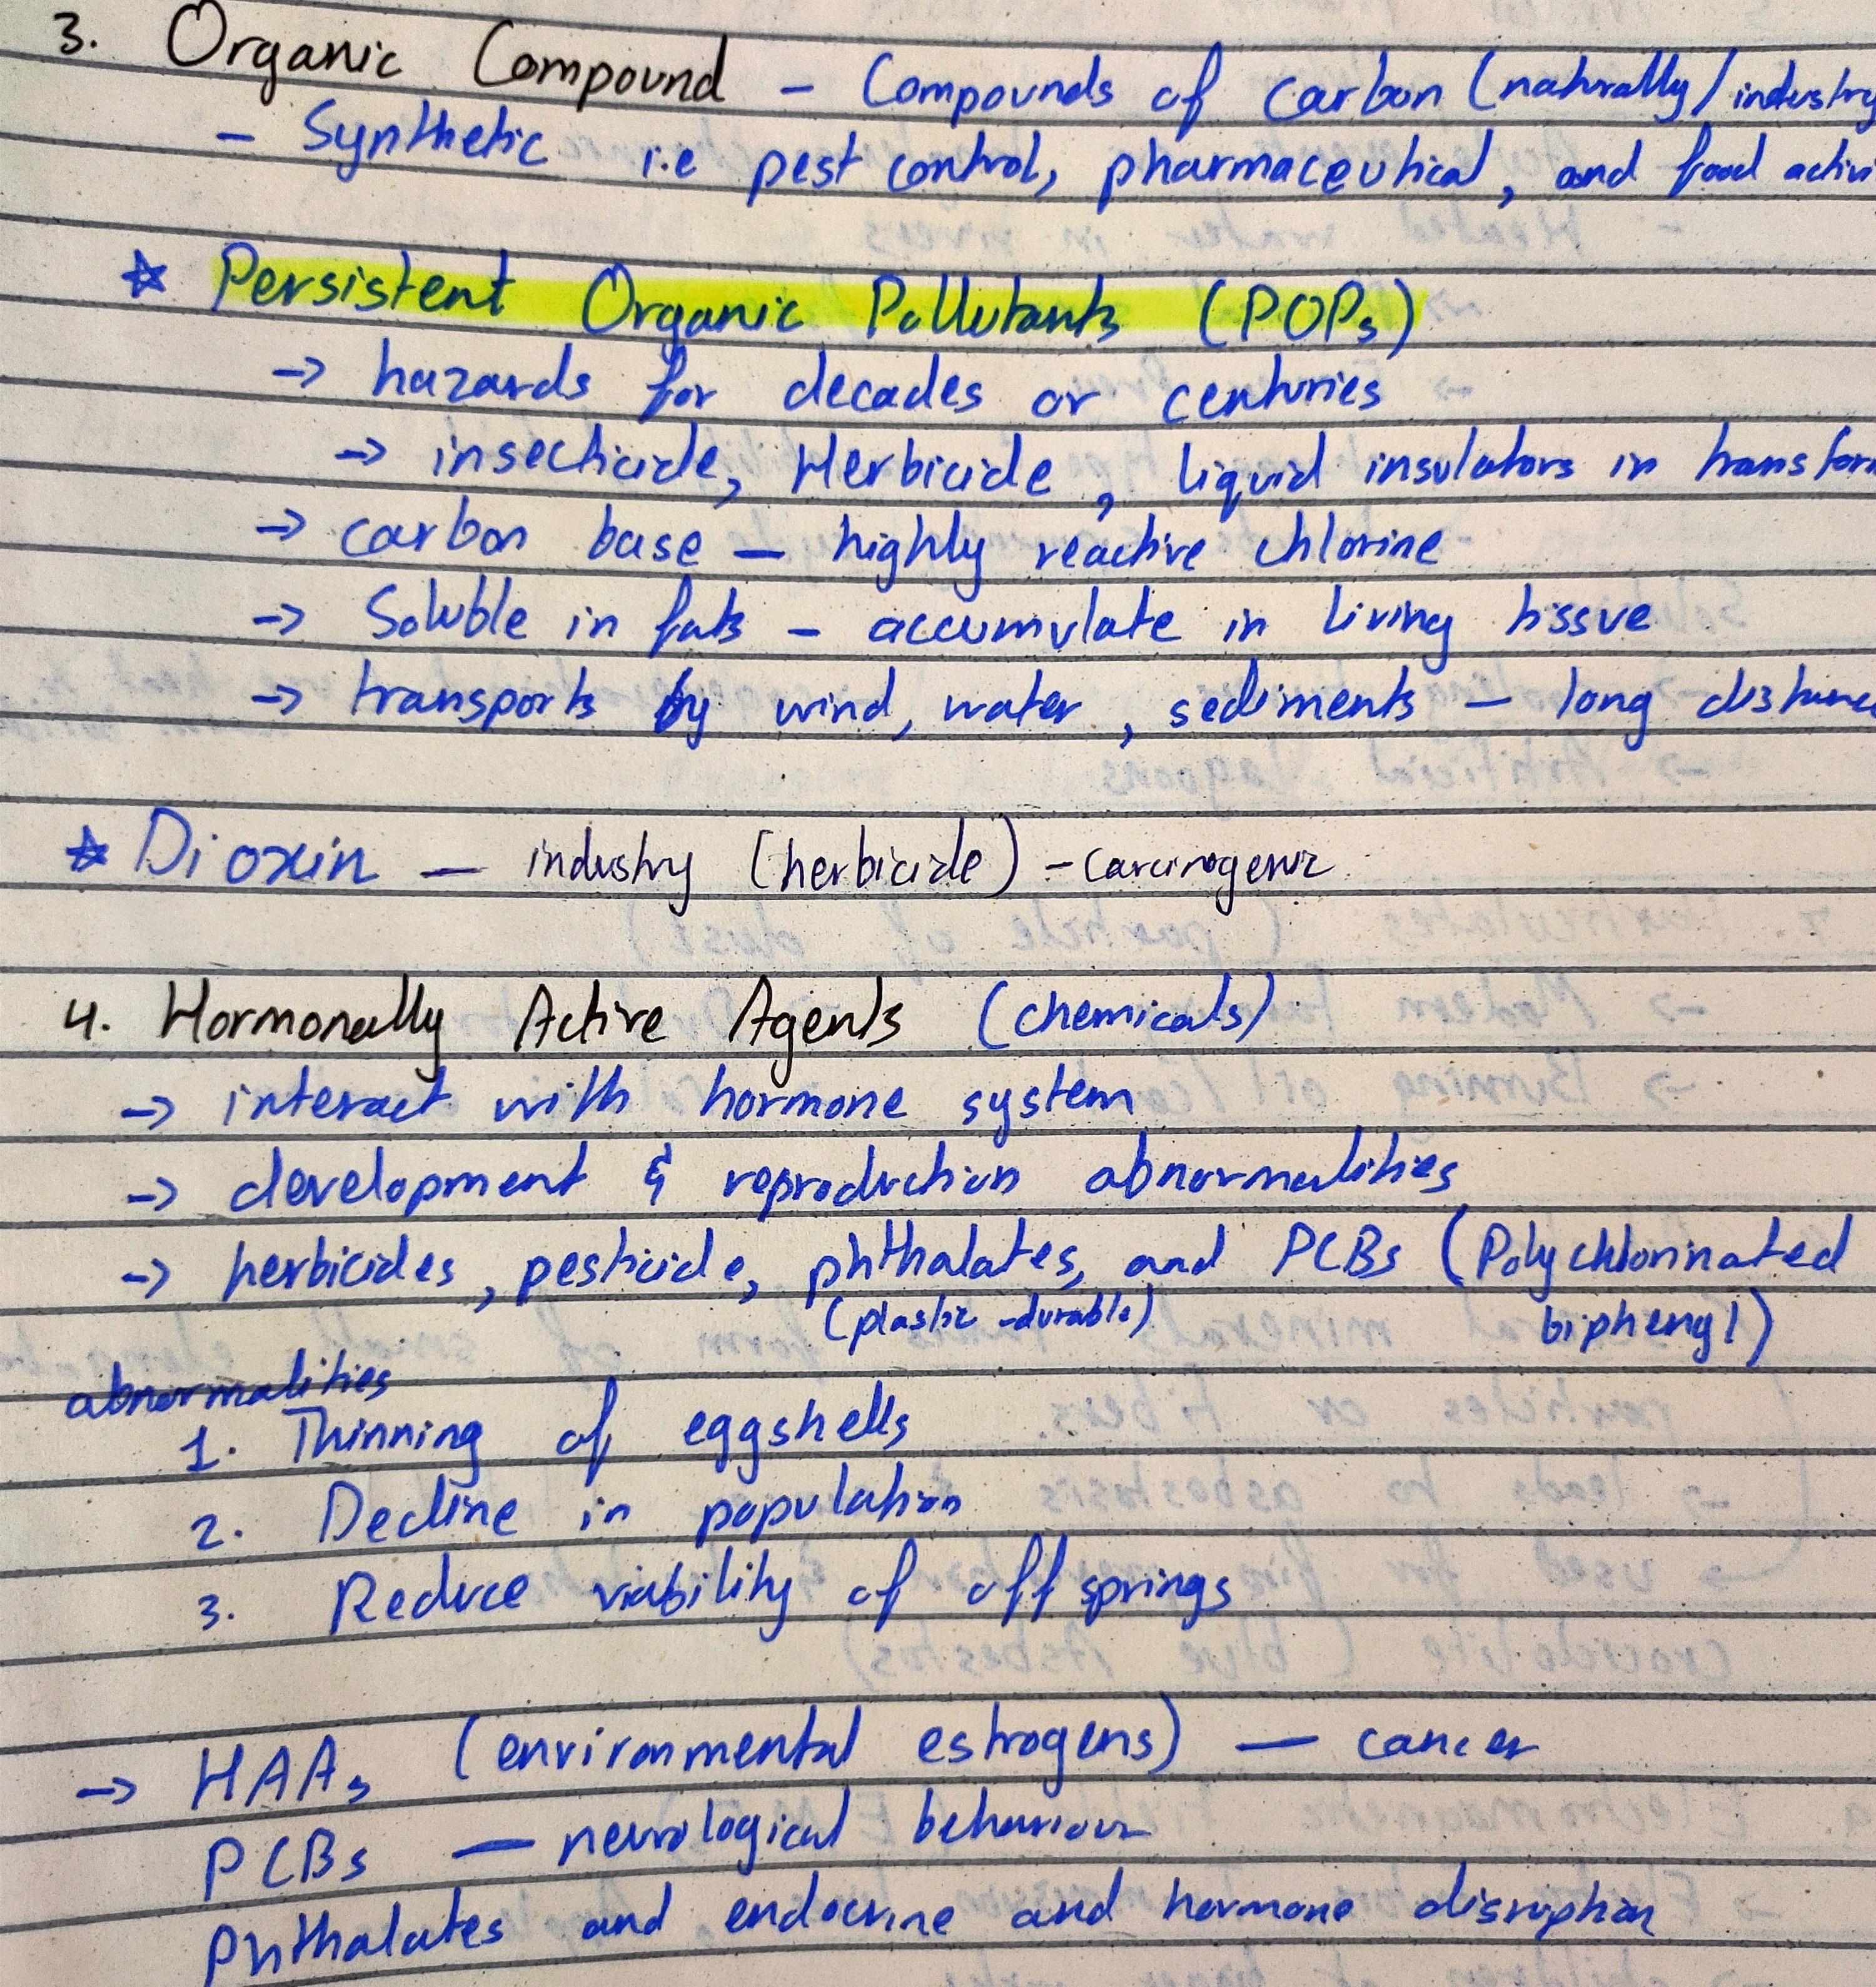 3. Organic Compound – Compounds of carbon (naturally/industry
– Synthetic i.e pest control, pharmaceutical, and food activi
☆ Persistent Organic Pollutants (POPs)
→ hazards for decades or centuries
→ insecticide, Herbicide, liquid insulators in transform
→ carbon base – highly reactive chlorine
→ Soluble in fats – accumulate in living tissue
→ transports by wind, water, sediments – long distance
☆ Dioxin – industry (herbicide) – carcinogenic
4. Hormonally Active Agents (chemicals)
→ interact with hormone system
→ development & reproduction abnormalities
→ herbicides, pesticide, phthalates, and PCBs (Polychlorinated
(plastic - durable) biphenyl)
abnormalities
1. Thinning of eggshells
2. Decline in population
3. Reduce viability of off springs
→ HAAs (environmental estrogens) – cancer
PCBs – neurological behaviour
Phthalates and endocrine and hormone disruption